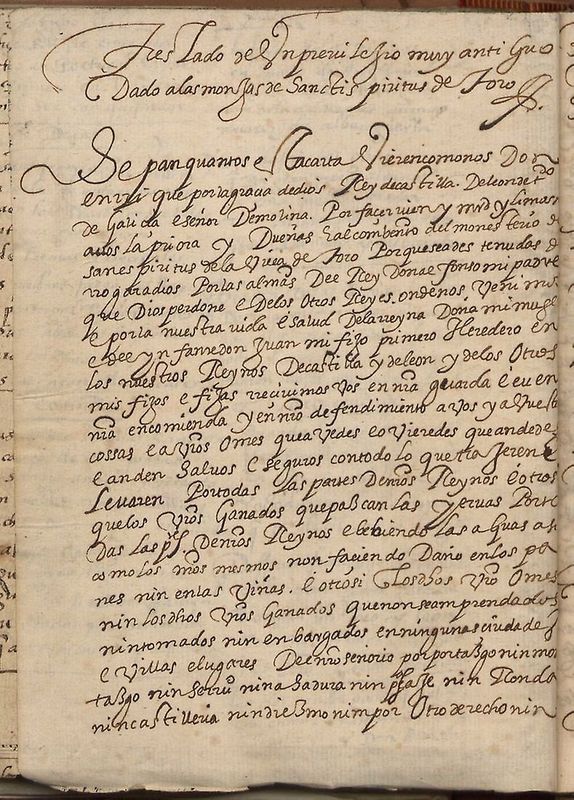 Treslado de Un previlejio muy antiguo
Dado a las monjas de Sanctispiritus de Toro
Sepan quantos esta carta Vieren como nos Don
enrri que por la gracia de dios Rey de castilla. De leon de tdo
de Galicia e señor De molina. Por facer vien y mrd y limosn
a vos la priora y Dueñas e al combento del monesterio de
santespiritus de la Villa de Toro Porque seades tenudas de
rrogar a dios Por las almas Del Rey Don alfonso mi padre
que Dios perdone e De los Otros Reyes. onde nos Venimos
e por la nuestra vida e salud De la rreyna Doña mi muger
e del ynfante don Juan mi fijo primero Heredero en
los nuestros Reynos De castilla y de leon y de los Otros
mis fijos e fijas rrecivimos Vos en nra guarda e en
nra encomienda y en nro defendimiento a Vos y a Vuestras
cossas e a Vros Omes que avedes e o Vieredes que anden
e anden Salvos e seguros con todo lo que traxeren e
Levaren Por todas las partes De nros Reynos e otrosi
que los Vros Ganados que pascan las yervas Por to
das las ptes De nros Reynos e bebiendo las aguas asi
como los nros mesmos non faciendo Daño en los pa
nes nin en las Viñas. E otrosi Los dhos Vros Omes
nin los dhos Vros Ganados que non sean prendados
nin tomados nin enbargados en ningunas ciudades
e Villas e lugares De nro señorio por portazgo nin mon
tazgo nin servi nin asadura nin pasaje nin Ronda
nin castilleria nin diezmo nin por Otro derecho nin